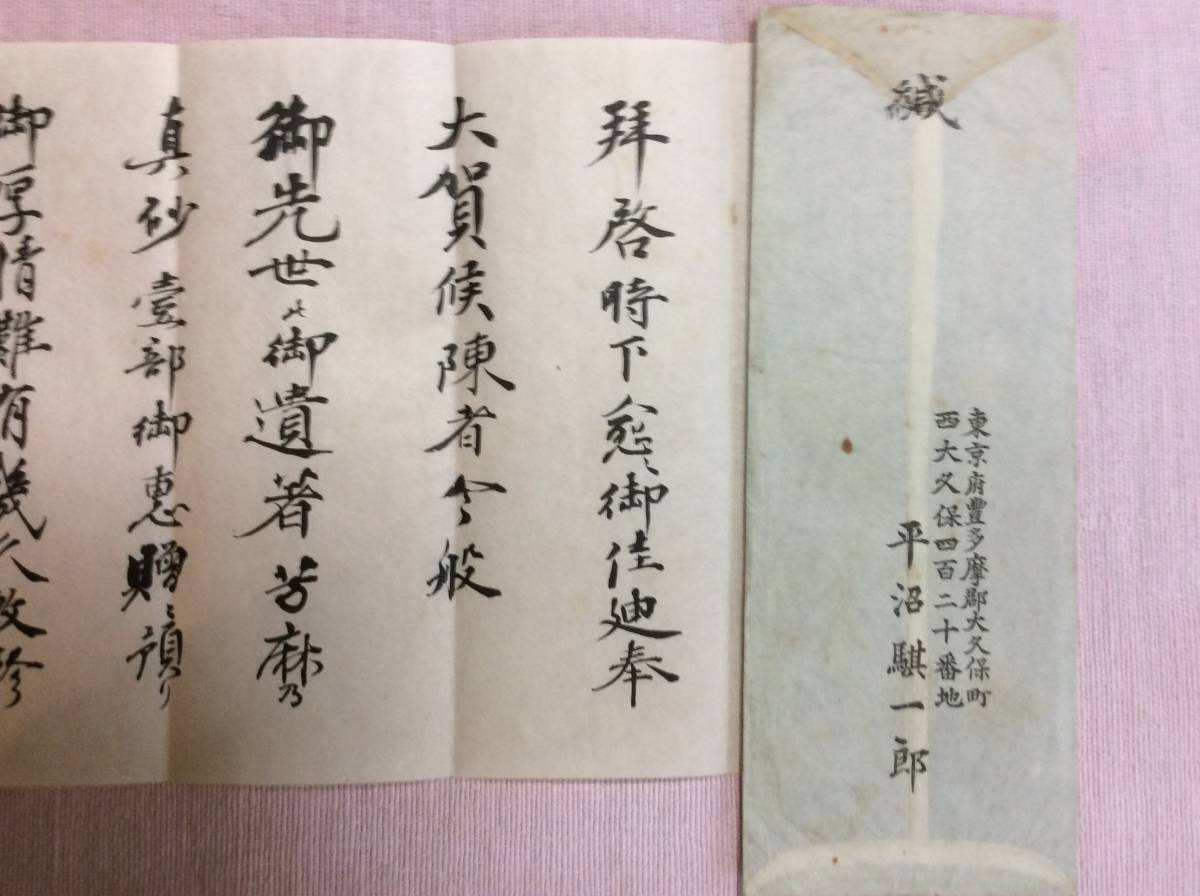 緘
東京府豊多摩郡大久保町
西大久保四百二十番地
平沼騏一郎
拝啓時下愈々御佳廸奉
大賀候陳者今般
御先世之御遺著芳麻乃
真砂壹部御恵贈ニ預り
御厚情難有幾久敬珍